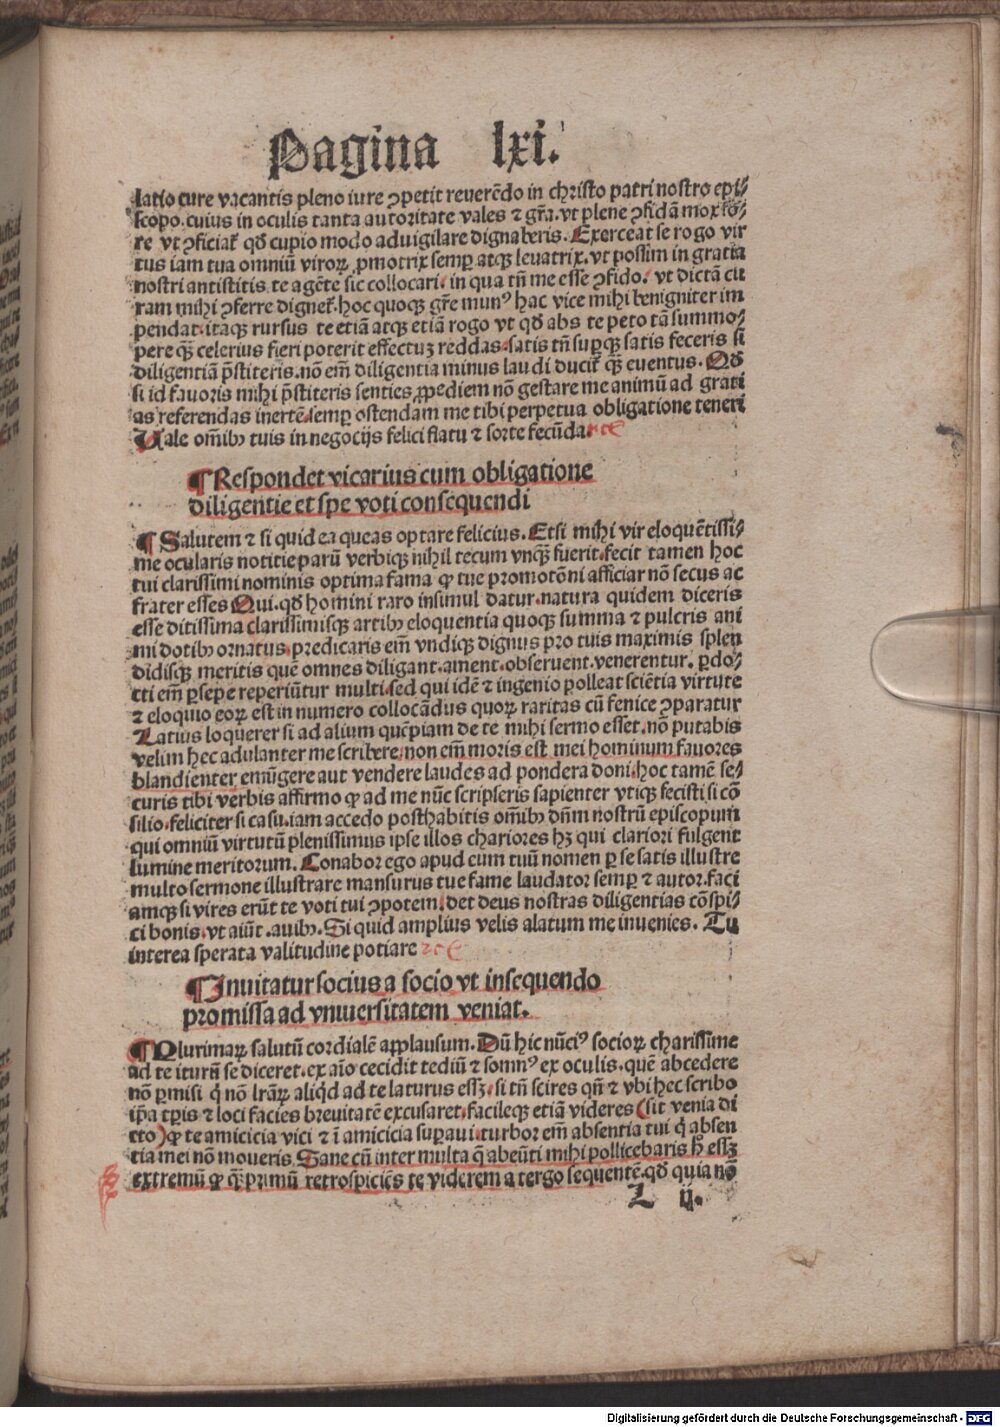 Pagina lxi.
latio cure vacantis pleno iure ꝯpetit reuerẽdo in christo patri nostro epi/
scopo. cuius in oculis tanta autoritate vales ⁊ gr̃a. vt plene ꝯfidã mox
re vt ꝯficiat̃ qd̃ cupio modo aduigilare digneris. Exerceat se rogo vir
tus iam tua omniũ viroꝝ ꝓmotrix semꝑ atqꝫ leuatrix. vt possim in gratia
nostri antistitis te agẽte sic collocari. in qua tñ me esse ꝯfido. vt dictã cu
ram mihi ꝯferre dignet̃. hoc quoqꝫ gr̃e munꝰ hac vice mihi benigniter im
pendat. itaqꝫ rursus te etiã atqꝫ etiã rogo vt qd̃ abs te peto tã summo/
pere qꝫ̃ celerius fieri poterit effectuꝫ reddas. satis tñ suꝑqꝫ satis feceris si
diligentiã p̃stiteris. nõ em̃ diligentia minus laudi ducit̃ qꝫ̃ euentus. Qd̃
si id fauoris mihi p̃stiteris senties ꝓpediem nõ gestare me animũ ad grati
as referendas inertẽ. semꝑ ostendam me tibi perpetua obligatione teneri
Uale om̃ibꝫ tuis in negocijs felici flatu ⁊ sorte fecũda. ⁊cẽ
¶ Respondet vicarius cum obligatione
diligentie et spe voti consequendi
¶ Salutem ⁊ si quid ea queas optare felicius. Etsi mihi vir eloquẽtissi/
me ocularis notitie parũ verbiqꝫ nihil tecum vnqꝫ̃ fuerit. fecit tamen hoc
tui clarissimi nominis optima fama ꝙ tue promotõni afficiar nõ secus ac
frater esses Qui. qd̃ homini raro insimul datur. natura quidem diceris
esse ditissima clarissimisqꝫ artibꝫ eloquentia quoqꝫ summa ⁊ pulcris ani
mi dotibꝫ ornatus. predicaris em̃ vndiqꝫ dignus pro tuis maximis splen
didisqꝫ meritis quẽ omnes diligant. ament. obseruent. venerentur. ꝑdo/
cti em̃ ꝑsepe reperiũtur multi. sed qui idẽ ⁊ ingenio polleat sciẽtia virtute
⁊ eloquio eoꝝ est in numero collocãdus quoꝝ raritas cũ fenice ꝯparatur
Latius loquerer si ad alium quẽpiam de te mihi sermo esset. nõ putabis
velim hec adulanter me scribere. non em̃ moris est mei hominum fauores
blandienter emũgere aut vendere laudes ad pondera doni. hoc tamẽ se/
curis tibi verbis affirmo ꝙ ad me nũc scripseris sapienter vtiqꝫ fecisti si cõ
silio. feliciter si casu. iam accedo posthabitis om̃ibꝫ dñm nostrũ episcopum
qui omniũ virtutũ plenissimus ipse illos chariores hꝫ qui clariori fulgent
lumine meritorum. Conabor ego apud eum tuũ nomen ꝑ se satis illustre
multo sermone illustrare mansurus tue fame laudator semꝑ ⁊ autor. faci
amqꝫ si vires erũt te voti tui ꝯpotem. det deus nostras diligentias cõspi/
ci bonis. vt aiũt. auibꝫ. Si quid amplius velis alatum me inuenies. Tu
interea sperata valitudine potiare ⁊cẽ
¶ Inuitatur socius a socio vt insequendo
promissa ad vniuersitatem veniat.
¶ Plurimaꝝ salutũ cordialẽ applausum. Dũ hic nũciꝰ socioꝝ charissime
ad te iturũ se diceret. ex aĩo cecidit tediũ ⁊ somnꝰ ex oculis. quẽ abcedere
nõ ꝑmisi q̇ nõ lr̃aꝝ aliq̇d ad te laturus essꝫ. si tñ scires qñ ⁊ vbi hec scribo
ip̃a tp̃is ⁊ loci facies breuitatẽ excusaret. facileqꝫ etiã videres (sit venia di
cto) ꝙ te amicicia vici ⁊ ĩ amicicia suꝑaui. turbor em̃ absentia tui q̇ absen
tia mei nõ moueris. Sane cũ inter multa q̃ abeũti mihi pollicebaris h̃ essꝫ
extremũ ꝙ qꝫ̃ primũ retrospiciẽs te viderem a tergo sequentẽ. qd̃ quia nõ
L ij.
Digitalisierung gefördert durch die Deutsche Forschungsgemeinschaft - DFG